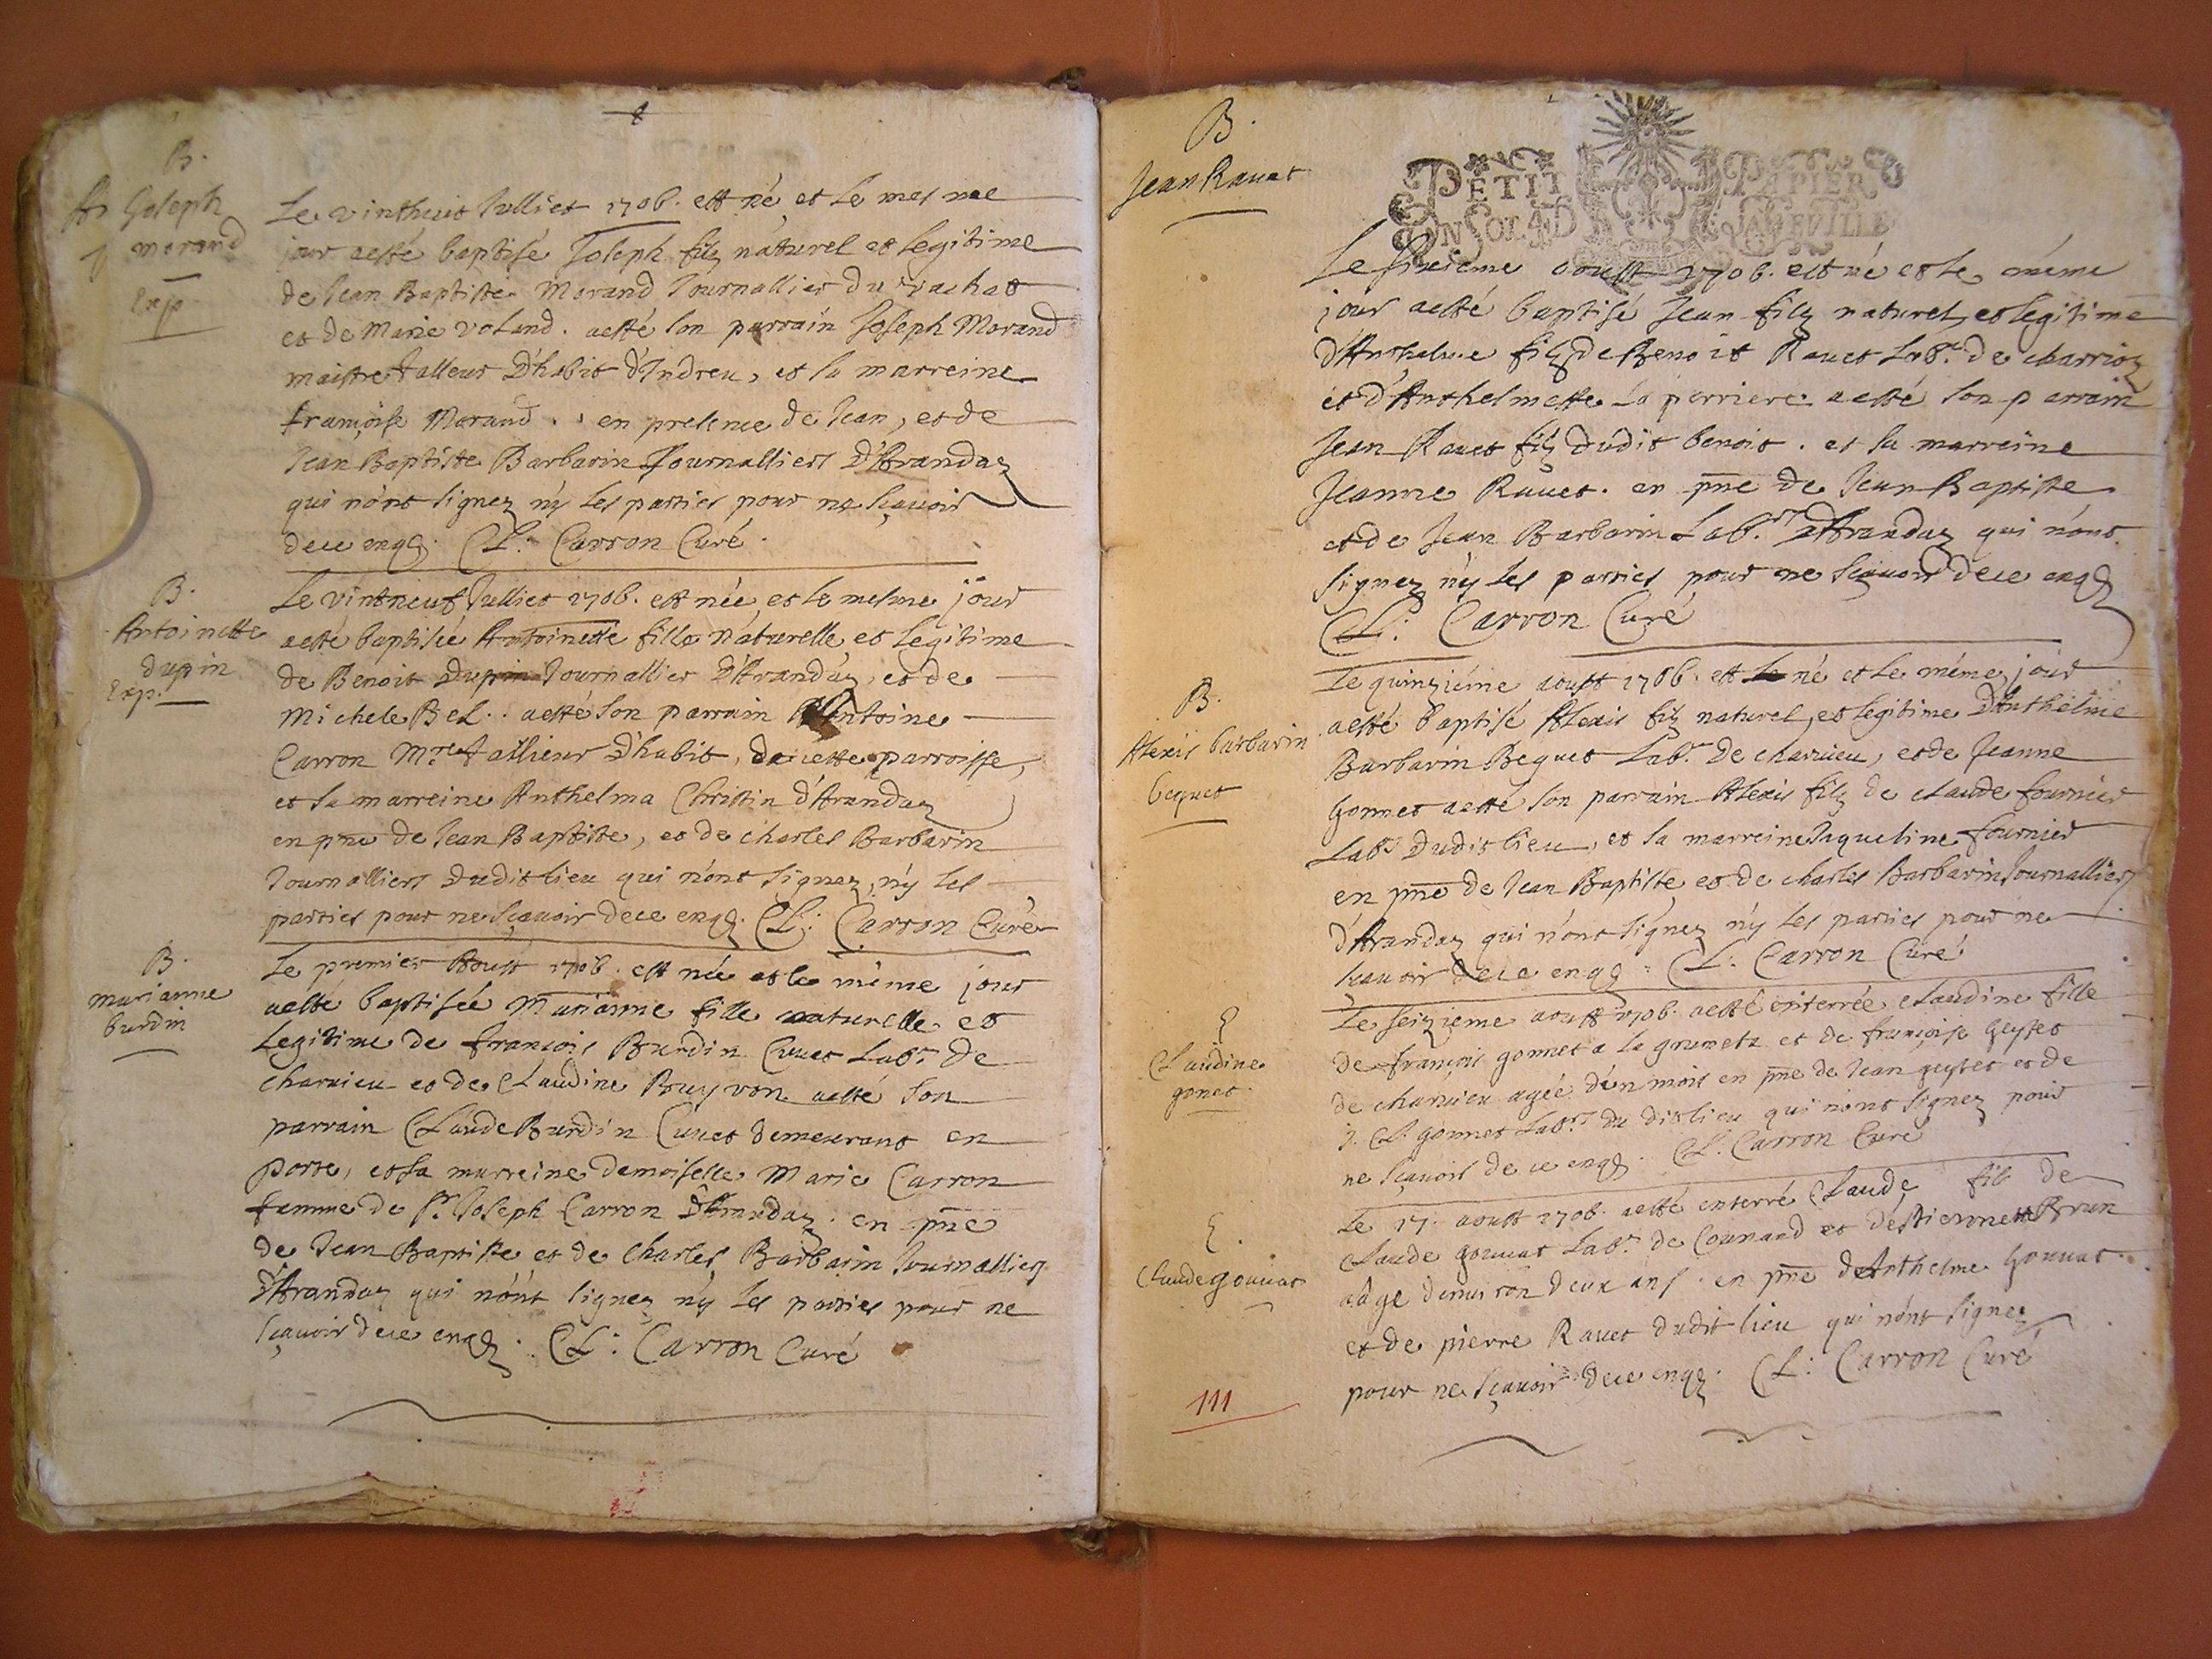 B.
Joseph
morand
Exp
Le vinthuit Julliet 1706. est né et le mesme
jour aesté baptisé Joseph filz naturel et legitime
de Jean Baptiste Morand Journallier du rachat
et de Marie voland. aesté son parrain Joseph Morand
maistre talleur D'habit d'Indreu, et la marreine
françoise Morand. en presence de Jean, et de
Jean Baptiste Barbarin Journalliers D'Arandaz
qui n'ont signez ny les parties pour ne sçavoir
dece enqs. Cl: Carron Curé.
B.
Antoinette
dupin
Exp.
Le vintneuf Julliet 1706. est née et le mesme jour
aesté baptisée Antoinette fille naturelle et legitime
de Benoit Dupin Journallier D'Arandaz, et de
Michele Bel.. aesté son parrain Antoine
Carron Mre tallieur D'habit, de cette parroisse,
et la marreine Anthelma Christin d'Arandaz
en pnce de Jean Baptiste, et de charles Barbarin
Journalliers dudit lieu qui n'ont signez, ny les
parties pour ne sçavoir dece enqs. Cl: Carron Curé
B.
marianne
burdin
Le premier Aoust 1706. est née et le même jour
aesté baptisée Marianne fille naturelle et
legitime de françois Burdin Cuuet Labr. de
charuieu et de Claudine Bruyron aesté son
parrain Claude Burdin Cuuet demeurant en
porte, et sa marreine demoiselle Marie Carron
femme de Sr. Joseph Carron D'Arandaz. en pnce
de Jean Baptiste et de Charles Barbarin Journalliers
d'Arandaz qui n'ont signez ny les parties pour ne
sçavoir dece enqs. Cl: Carron Curé
B.
Jean Rauet
PETIT PAPIER
UN SOL 4 D LA FEUILLE
Le sixieme aoust 1706. est né et le même
jour aesté baptisé Jean filz naturel, et legitime
d'Anthelme filz de Benoit Rauet Labr. de charrioz
et d'Anthelmette La perriere aesté son parrain
Jean Rauet filz dudit benoit. et la marreine
Jeanne Rauet. en pnce de Jean Baptiste
et de Jean Barbarin Labrs. d'Arandaz qui n'ont
signez ny les parties pour ne sçauoir dece enqs
Cl: Carron Curé
B.
Alexis barbarin
bequet
Le quinziéme aoust 1706. est né et le même jour
aesté baptisé Alexis filz naturel, et legitime D'Anthelme
Barbarin Bequet Labr. de charuieu, et de Jeanne
Gonnet aesté son parrain Alexis filz de claude fournier
Labr. dudit lieu, et sa marreine Jaqueline fournier
en pnce de Jean Baptiste et de charles Barbarin Journalliers
d'Arandaz qui n'ont signez ny les parties pour ne
sçauoir dece enqs. Cl: Carron Curé
E
Claudine
gonet.
Le seizieme aoust 1706. aesté enterrée claudine fille
de françois gonnet a la groumeta et de françoise Geystet
de charuieu agée d'un mois en pnce de Jean geystet et de
J. Cl. gonnet Labrs. du dit lieu qui n'ont signez pour
ne sçauoir de ce enqs. Cl. Carron Curé
E.
Claude gouuat
Le 17. aoust 1706. aesté enterré Claude fils de
Claude gouuat Labr. de Counand et d'estiennette Brun
aagé d'enuiron deux ans. en pnce d'Anthelme Gouuat
et de pierre Rauet dudit lieu qui n'ont signez
pour ne sçauoir dece enqs. Cl: Carron Curé
111